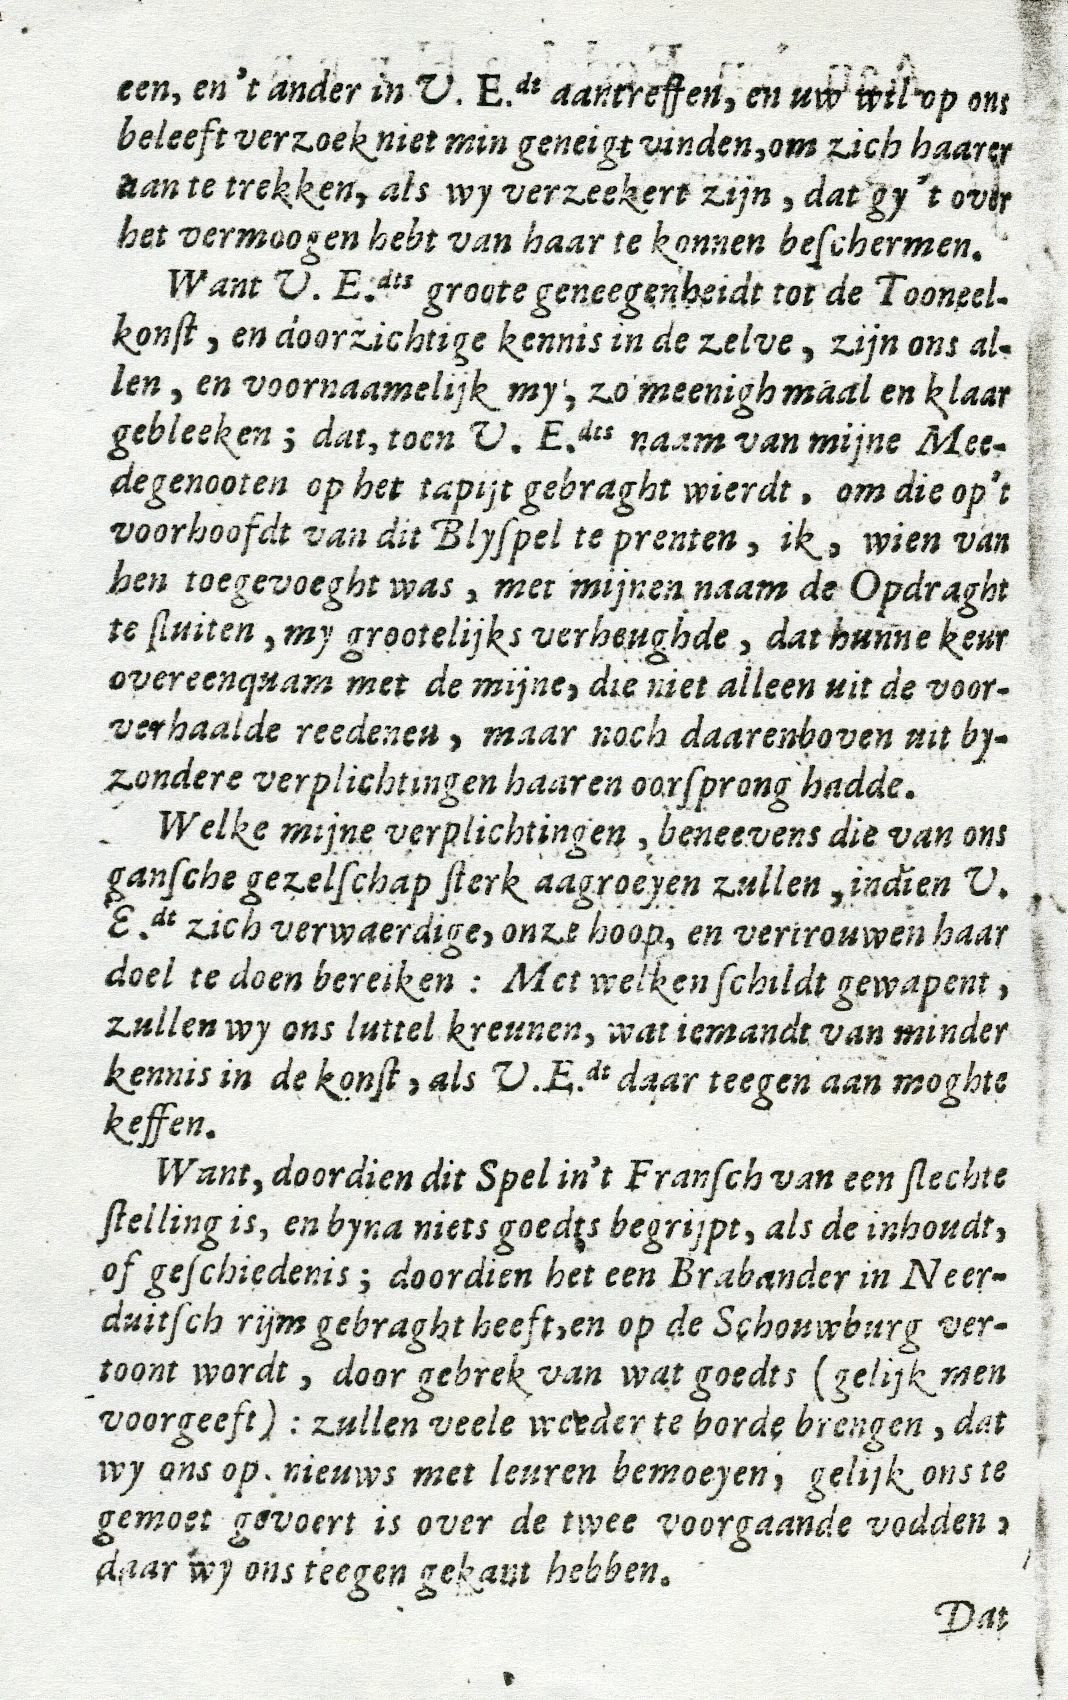 een, en 't ander in U. E.dt aantreffen, en uw wil op ons
beleeft verzoek niet min geneigt vinden, om zich haarer
aan te trekken, als wy verzeekert zijn, dat gy 't over
het vermoogen hebt van haar te konnen beſchermen.
Want U. E.dts groote geneegenheidt tot de Tooneel-
konſt, en doorzichtige kennis in de zelve, zijn ons al-
len, en voornaamelijk my, zo meenighmaal en klaar
gebleeken; dat, toen U. E.dts naam van mijne Mee-
degenooten op het tapijt gebraght wierdt. om die op't
voorhoofdt van dit Blyſpel te prenten, ik, wien van
hen toegevoeght was, met mijnen naam de Opdraght
te ſluiten, my grootelijks verheughde, dat hunne keur
overeenquam met de mijne, die niet alleen uit de voor-
verhaalde reedenen, maar noch daarenboven uit by-
zondere verplichtingen haaren oorſprong hadde.
Welke mijne verplichtingen, beneevens die van ons
ganſche gezelſchap ſterk aagroeyen zullen, indien U.
E.dt zich verwaerdige, onze hoop, en vertrouwen haar
doel te doen bereiken: Met welken ſchildt gewapent,
zullen wy ons luttel kreunen, wat iemandt van minder
kennis in de konſt, als U.E.dt daar teegen aan moghte
keffen.
Want, doordien dit Spel in't Franſch van een ſlechte
ſtelling is, en byna niets goedts begrijpt, als de inhoudt,
of geſchiedenis; doordien het een Brabander in Neer-
duitſch rijm gebraght heeft, en op de Schouwburg ver-
toont wordt, door gebrek van wat goedts (gelijk men
voorgeeft): zullen veele weeder te borde brengen, dat
wy ons op. nieuws met leuren bemoeyen, gelijk ons te
gemoet gevoert is over de twee voorgaande vodden,
daar wy ons teegen gekant hebben.
Dat